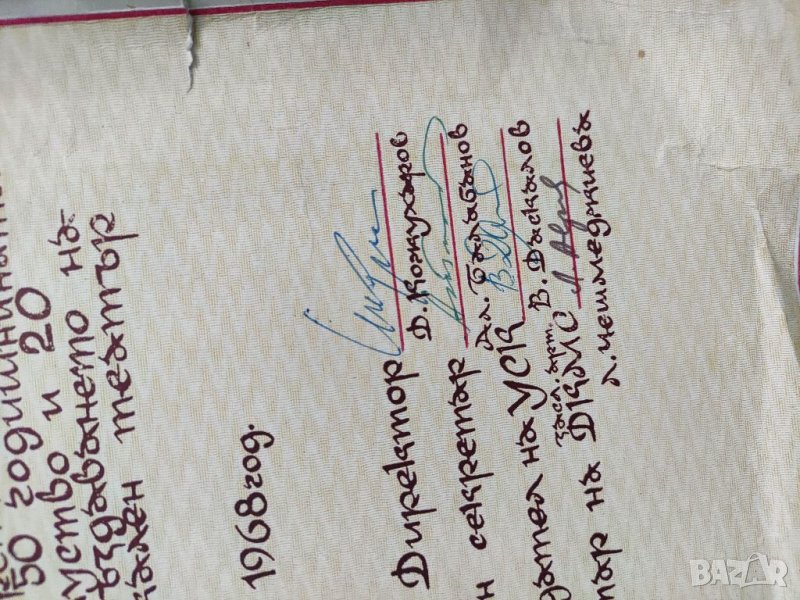 50 годишнината
уство и 20
ъздаването на
ален театър
1968 год.
Директор
Д. Кожухаров
н секретар
Ал. Балабанов
дател на УСК
засл. арт. В. Даскалов
тар на ДКМС
Л. Чешмеджиева
BAZAR